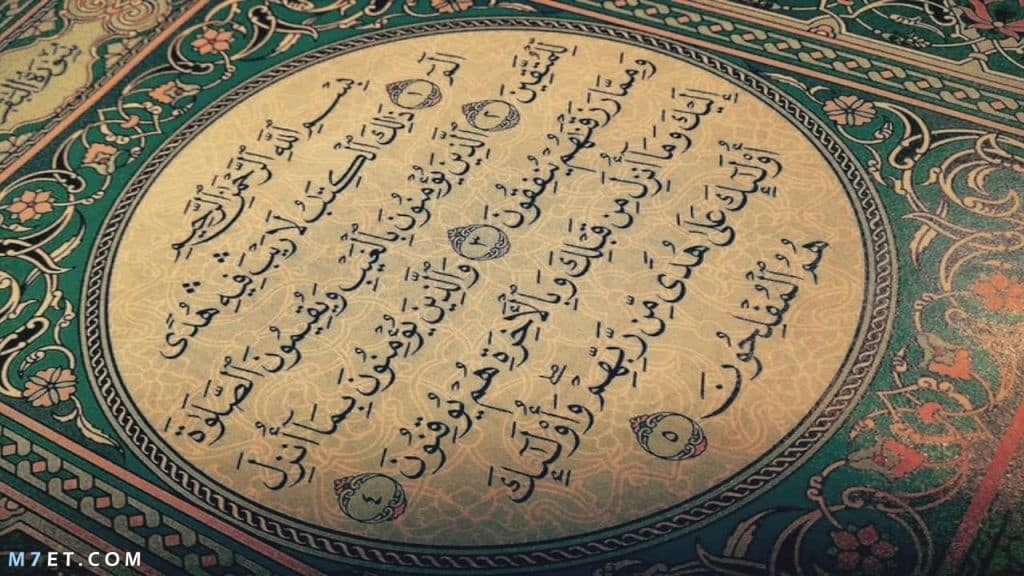 سُورَةُ
بِسْمِ ٱللَّهِ ٱلرَّحْمَٰنِ ٱلرَّحِيمِ
الٓمٓ ١ ذَٰلِكَ ٱلْكِتَٰبُ لَا رَيْبَ ۛ فِيهِ ۛ هُدًى
لِّلْمُتَّقِينَ ٢ ٱلَّذِينَ يُؤْمِنُونَ بِٱلْغَيْبِ وَيُقِيمُونَ ٱلصَّلَوٰةَ
وَمِمَّا رَزَقْنَٰهُمْ يُنفِقُونَ ٣ وَٱلَّذِينَ يُؤْمِنُونَ بِمَآ أُنزِلَ
إِلَيْكَ وَمَآ أُنزِلَ مِن قَبْلِكَ وَبِٱلْءَاخِرَةِ هُمْ يُوقِنُونَ ٤
أُو۟لَٰٓئِكَ عَلَىٰ هُدًى مِّن رَّبِّهِمْ ۖ وَأُو۟لَٰٓئِكَ
هُمُ ٱلْمُفْلِحُونَ ٥
M7ET.COM